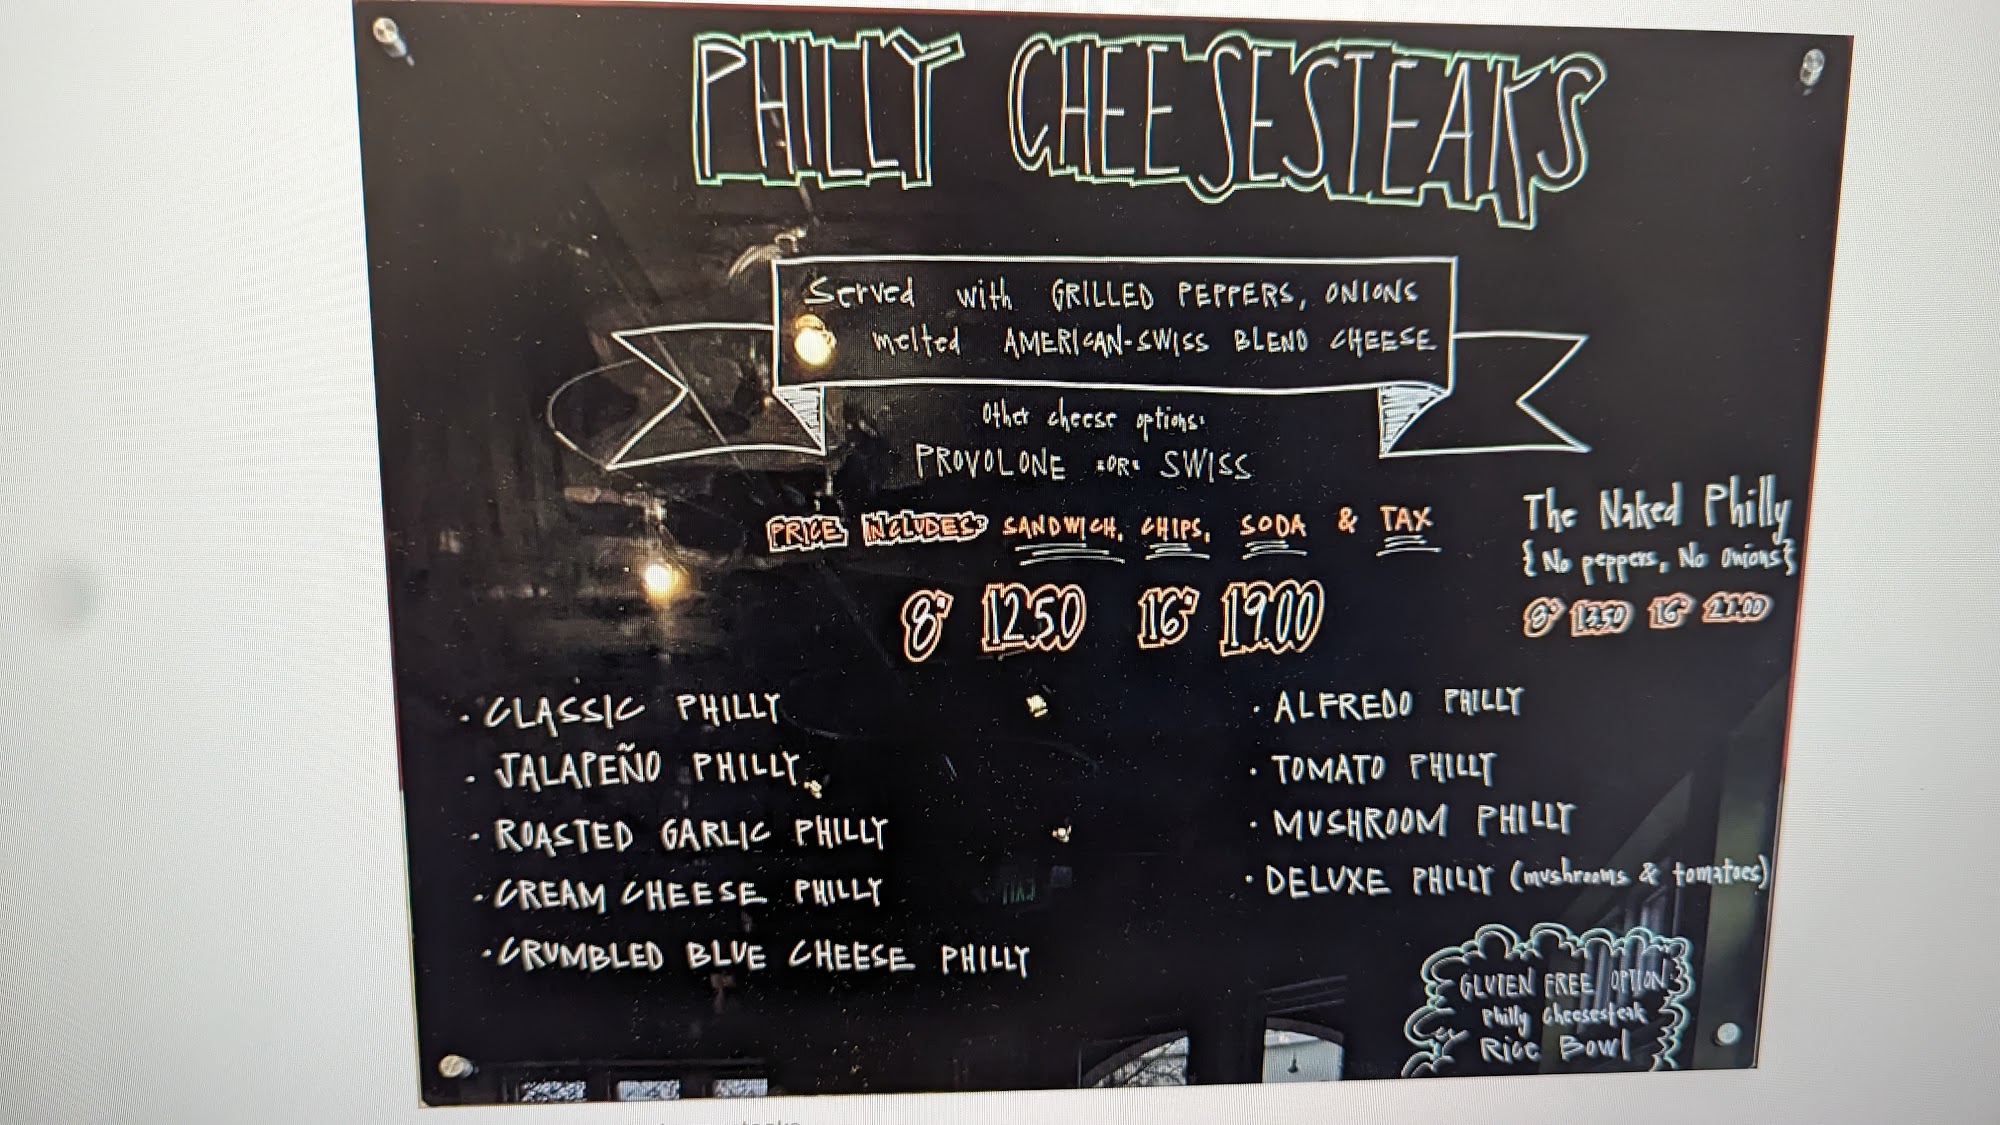 PHILLY CHEESESTEAKS
Served with GRILLED PEPPERS, ONIONS
melted AMERICAN-SWISS BLEND CHEESE
Other cheese options:
PROVOLONE •OR• SWISS
PRICE INCLUDES: SANDWICH, CHIPS, SODA & TAX
8" 12.50 16" 19.00
The Naked Philly
{No peppers, No Onions}
8" 13.50 16" 21.00
• CLASSIC PHILLY
• JALAPEÑO PHILLY
• ROASTED GARLIC PHILLY
• CREAM CHEESE PHILLY
• CRUMBLED BLUE CHEESE PHILLY
• ALFREDO PHILLY
• TOMATO PHILLY
• MUSHROOM PHILLY
• DELUXE PHILLY (mushrooms & tomatoes)
GLUTEN FREE OPTION
Philly Cheesesteak
Rice Bowl